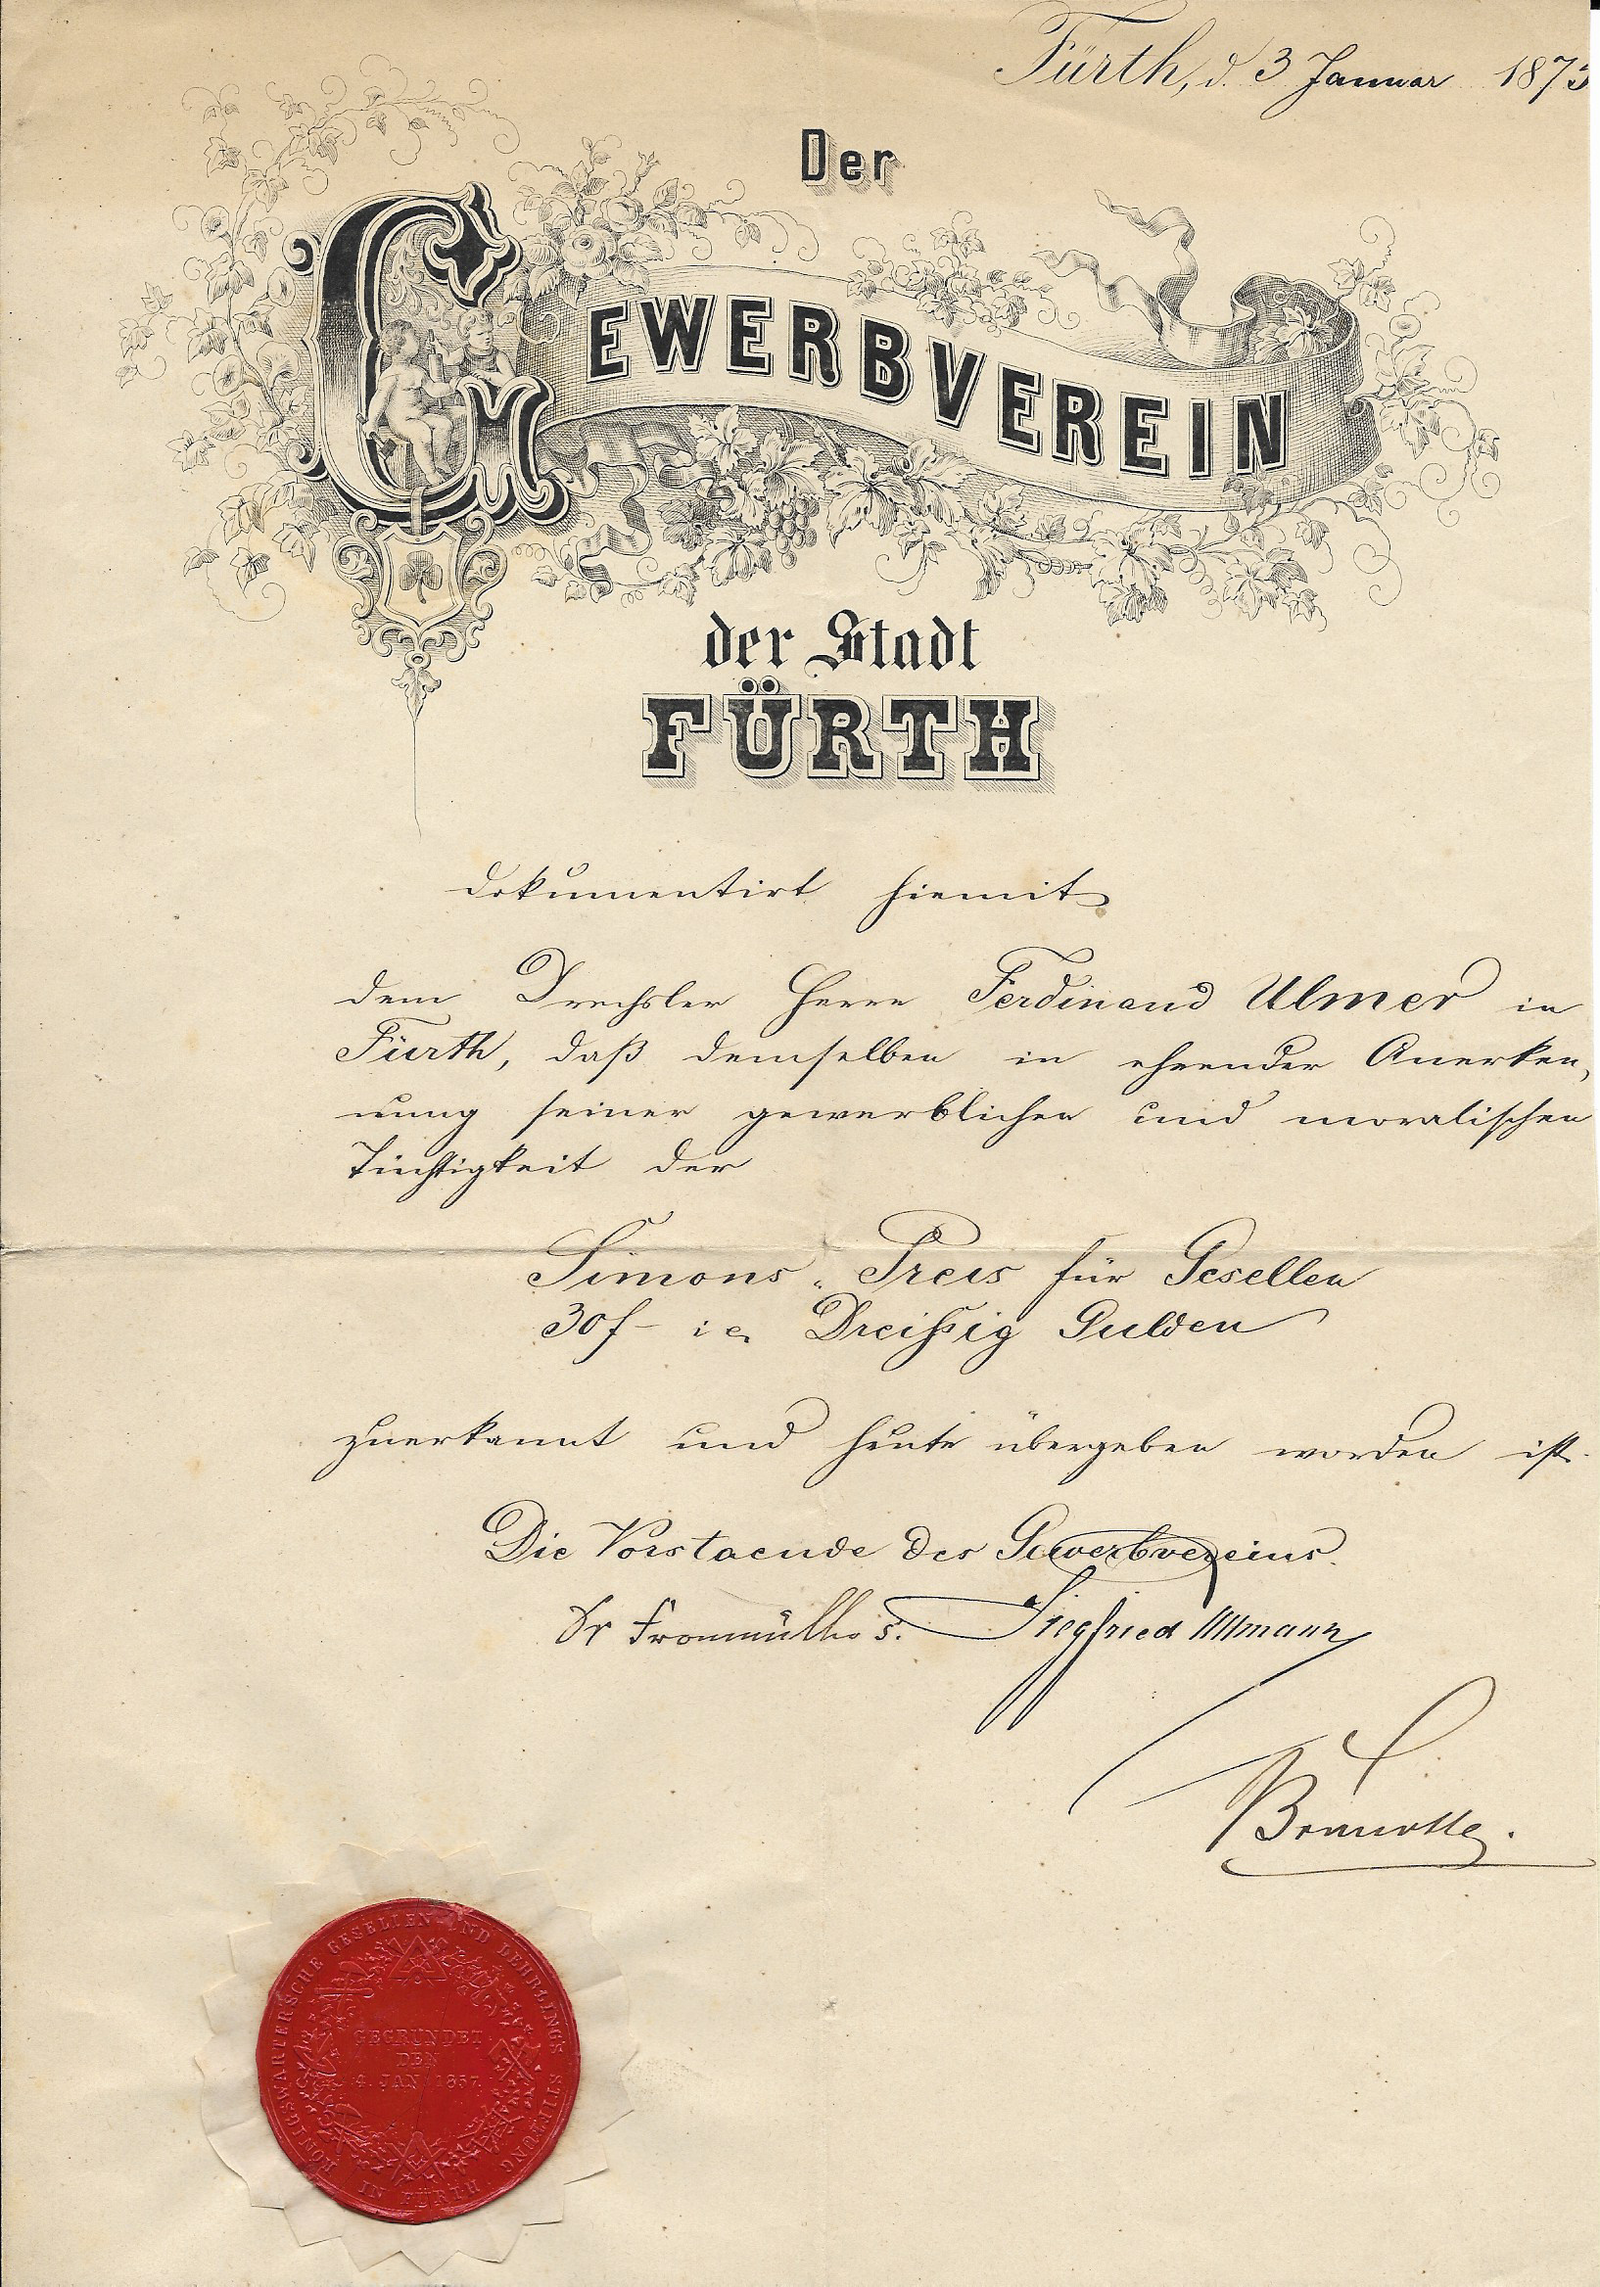 Fürth, d. 3 Januar 1873
Der
GEWERBVEREIN
der Stadt
FÜRTH
dokumentirt hiemit
dem Drechsler Herrn Ferdinand Ulmer in
Fürth, daß demselben in ehrender Anerken,
nung seiner gewerblichen und moralischen
Tüchtigkeit der
Simons-Preis für Gesellen
30 f – i e. Dreißig Gulden
zuerkannt und heute übergeben worden ist.
Die Vorstaende des Gewerbvereins.
Dr Fronmüller s. Siegfried Ullmann
KÖNIGSWARTERSCHE GESELLEN UND LEHRLINGS STIFTUNG
IN FÜRTH
GEGRÜNDET
DEN
4. JAN 1857